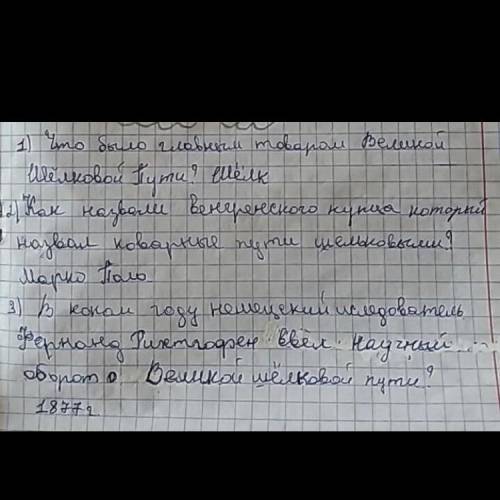 1) Что было главным товаром Великой
Шёлковой Пути? Шёлк
2) Как назвали венгренского купца который
назвал коварные пути шелковыми?
Марко Поло
3) В каком году немецский иследователь
Фернанд Рихтгофен ввёл научный
оборот о Великой шёлковой пути?
1877г